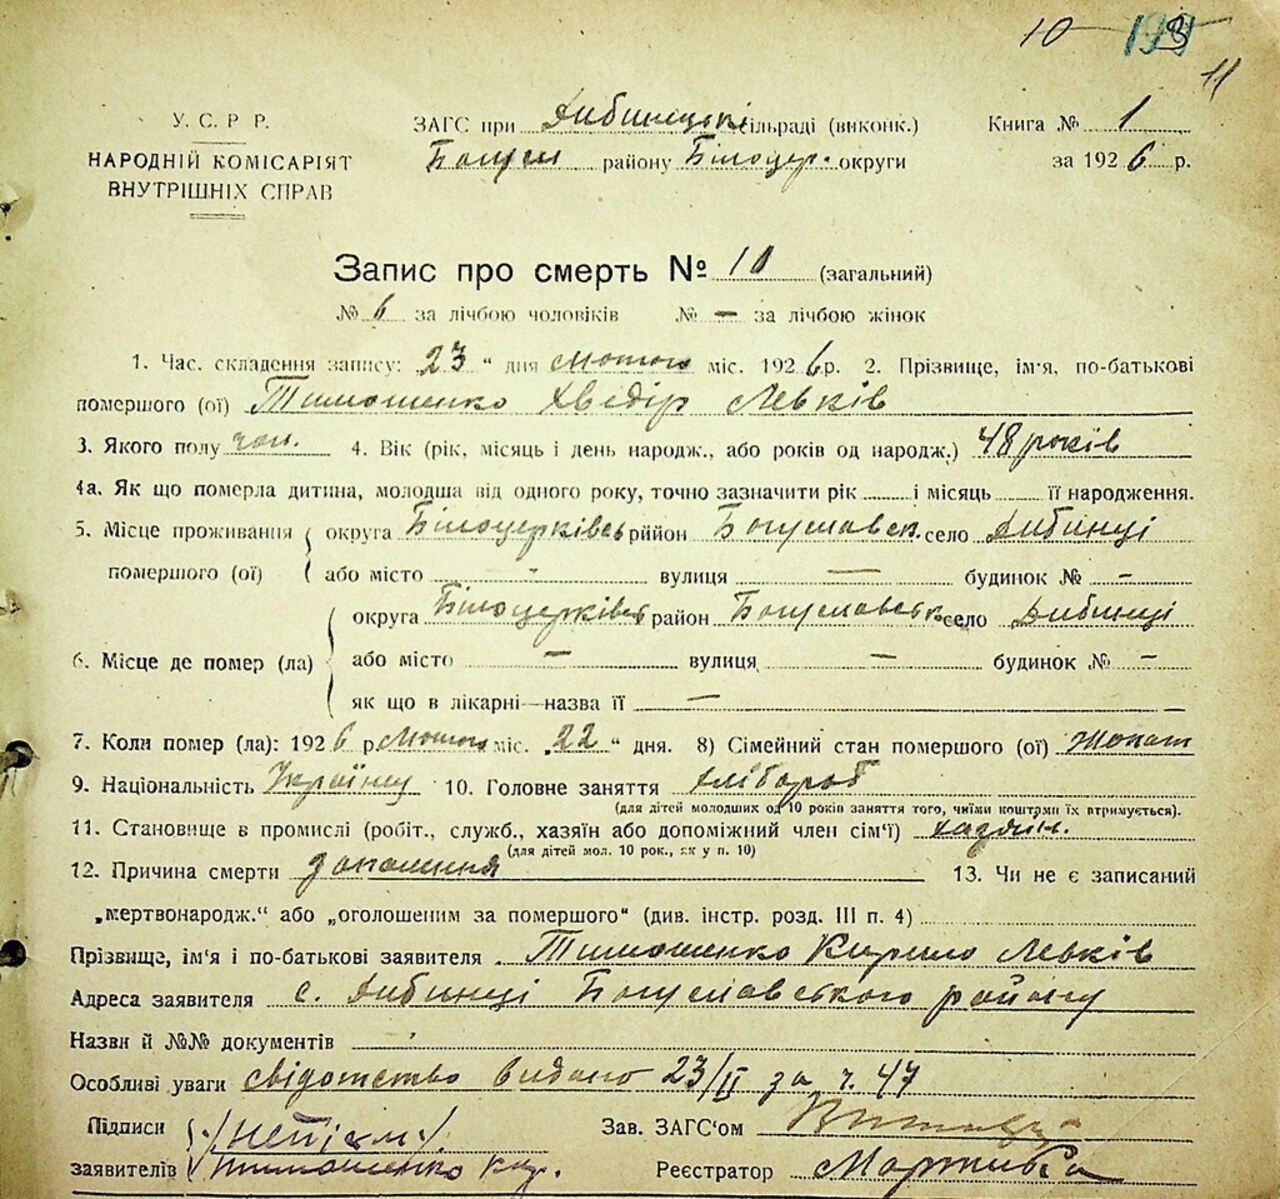 10
11
У. С. Р. Р.
НАРОДНІЙ КОМІСАРІЯТ
ВНУТРІШНІХ СПРАВ
ЗАГС при Дибинецькі сільраді (виконк.)
Богусл району Білоцер. округи
Книга № 1
за 1926 р.
Запис про смерть № 10 (загальний)
№ 6 за лічбою чоловіків № — за лічбою жінок
1. Час. складення запису: 23 " дня лютого міс. 1926 р. 2. Прізвище, ім'я, по-батькові
помершого (ої) Тимошенко Хведір Левків
3. Якого полу чол. 4. Вік (рік, місяць і день народж., або років од народж.) 48 років
4а. Як що померла дитина, молодша від одного року, точно зазначити рік і місяць її народження.
5. Місце проживання округа Білоцерківсь рйійон Богуславск. село Дибинці
помершого (ої) або місто - вулиця — будинок № -
округа Білоцерківсь район Богуславськ село Дибинці
6. Місце де помер (ла) або місто — вулиця — будинок № —
як що в лікарні—назва її —
7. Коли помер (ла): 1926 р. Лютого міс. „22 " дня. 8) Сімейний стан помершого (ої) жонат
9. Національність Українец 10. Головне заняття Хлібороб
(для дітей молодших од 10 років заняття того, чиїми коштами їх втримується).
11. Становище в промислі (робіт., служб., хазяїн або допоміжний член сім'ї) хазяїн.
(для дітей мол. 10 рок., як у п. 10)
12. Причина смерти 13. Чи не є записаний
„мертвонародж." або „оголошеним за помершого" (див. інстр. розд. III п. 4)
Прізвище, ім'я і по-батькові заявителя Тимошенко Кирило Левків
Адреса заявителя с. Дибинці Богуславського району
Назви й №№ документів
Особливі уваги свідотство видано 23/II за ч. 47
Підписи /непісм./ Зав. ЗАГС'ом
заявителів Тимошенко Кир. Реєстратор